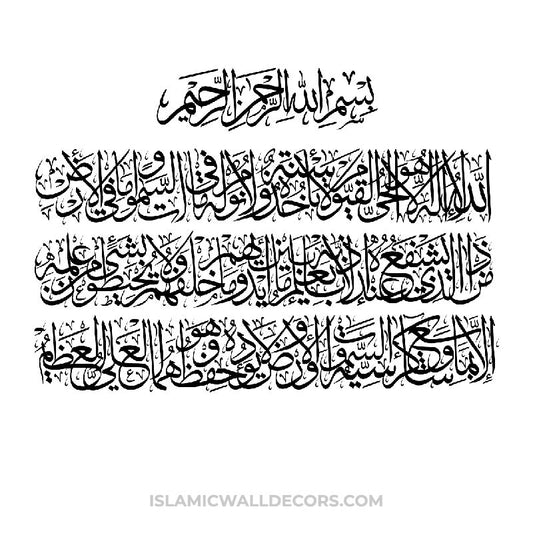 بِسْمِ اللهِ الرَّحْمٰنِ الرَّحِيْمِ
اللهُ لا إله إلا هو الحي القيوم لا تأخذه سنة ولا نوم له ما في السموات وما في الأرض
من ذا الذي يشفع عنده إلا بإذنه يعلم ما بين أيديهم وما خلفهم ولا يحيطون بشيء من علمه
إلا بما شاء وسع كرسيه السموات والأرض ولا يؤده حفظهما وهو العلي العظيم
ISLAMICWALLDECORS.COM